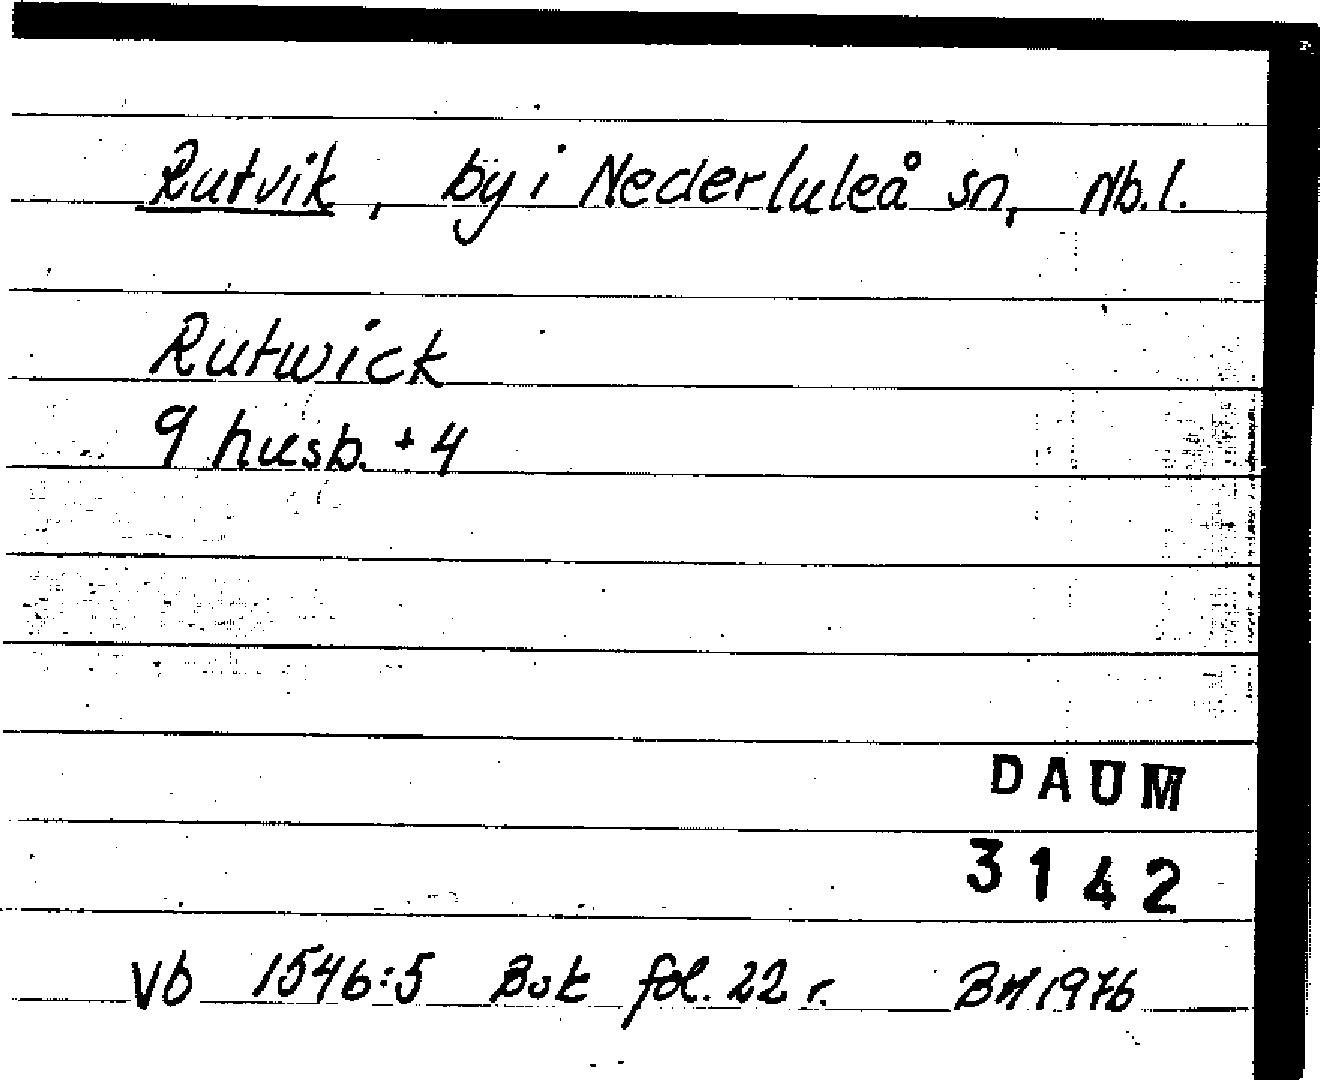 Rutvik, by i Nederluleå sn, Nb.l.
Rutwick
9 husb. + 4
DAUM
3142
Vb 1546:5 Bsk fol. 22 r. BN 1976